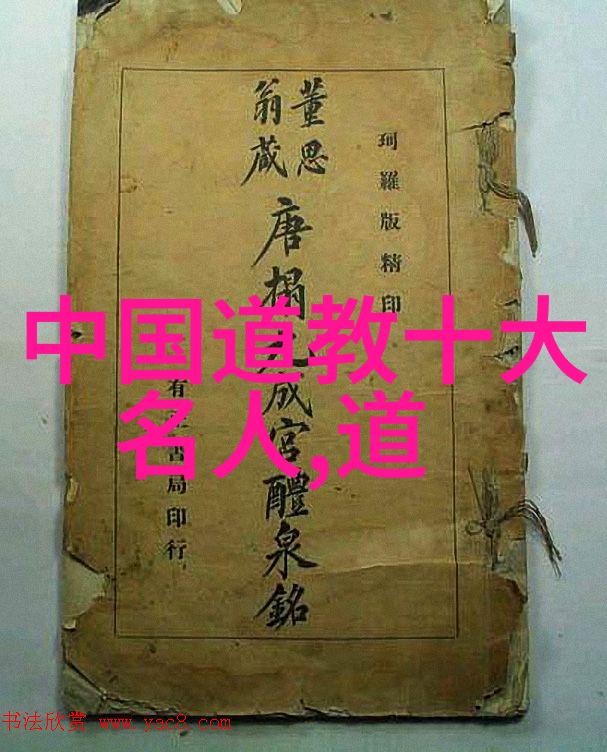 珂羅版精印
董思
翁藏
唐搨成宮醴泉銘
有書局印行
中国道教十大
名人,道
书法欣赏 www.yac8.com